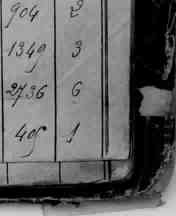 904 2
1349 3
2736 6
409 1